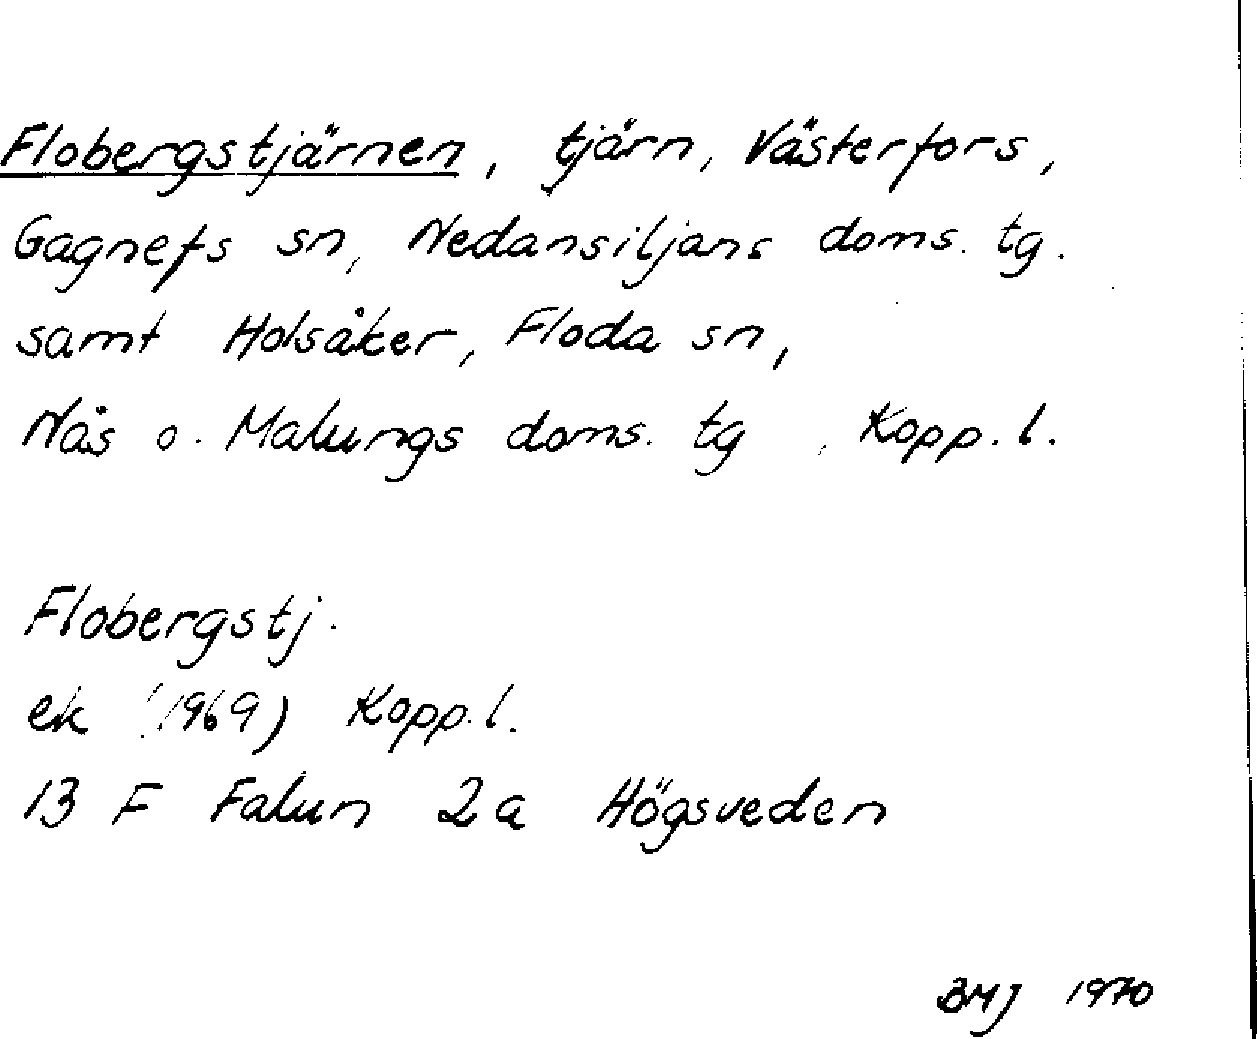 Flobergstjärnen, tjärn, Västerfors,
Gagnefs sn, Nedansiljans doms. tg.
samt Holsåker, Floda sn,
Nås o. Malungs doms. tg, Kopp. l.
Flobergstj.
ek (1969) Kopp. l.
13 F Falun 2a Högsveden
BMJ 1970